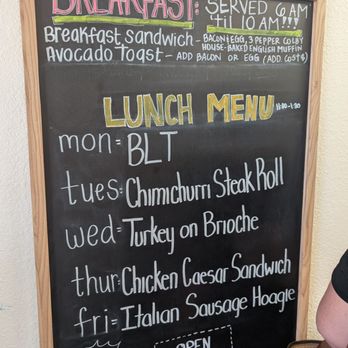 BREAKFAST: SERVED 6AM
'TIL 10AM!!!
Breakfast sandwich - BACON & EGG, 3 PEPPER COLBY
HOUSE-BAKED ENGLISH MUFFIN
Avocado Toast - ADD BACON OR EGG (ADD. COST $)
LUNCH MENU 11:00-1:30
mon= BLT
tues= Chimichurri Steak Roll
wed= Turkey on Brioche
thur= Chicken Caesar Sandwich
fri= Italian Sausage Hoagie
OPEN